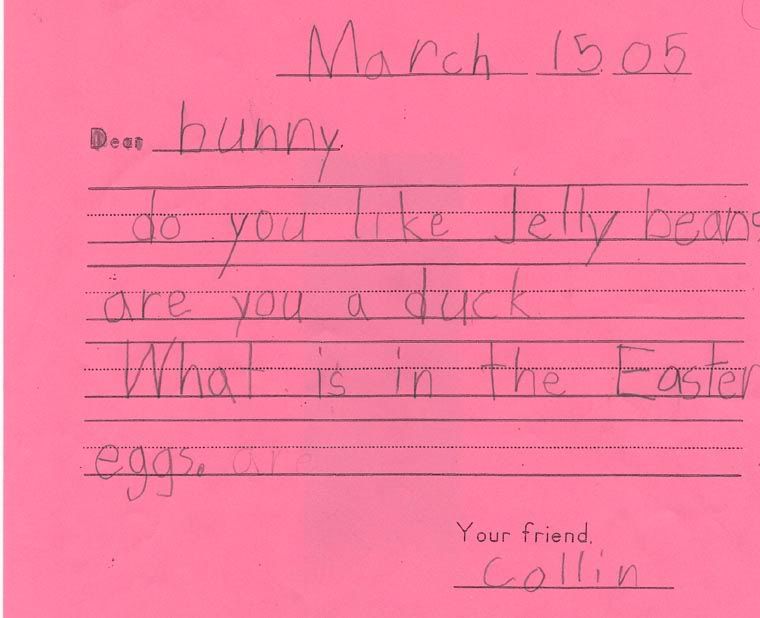 March 15 05
Dear bunny
do you like jelly beans
are you a duck
What is in the Easter
eggs. are
Your friend,
collin